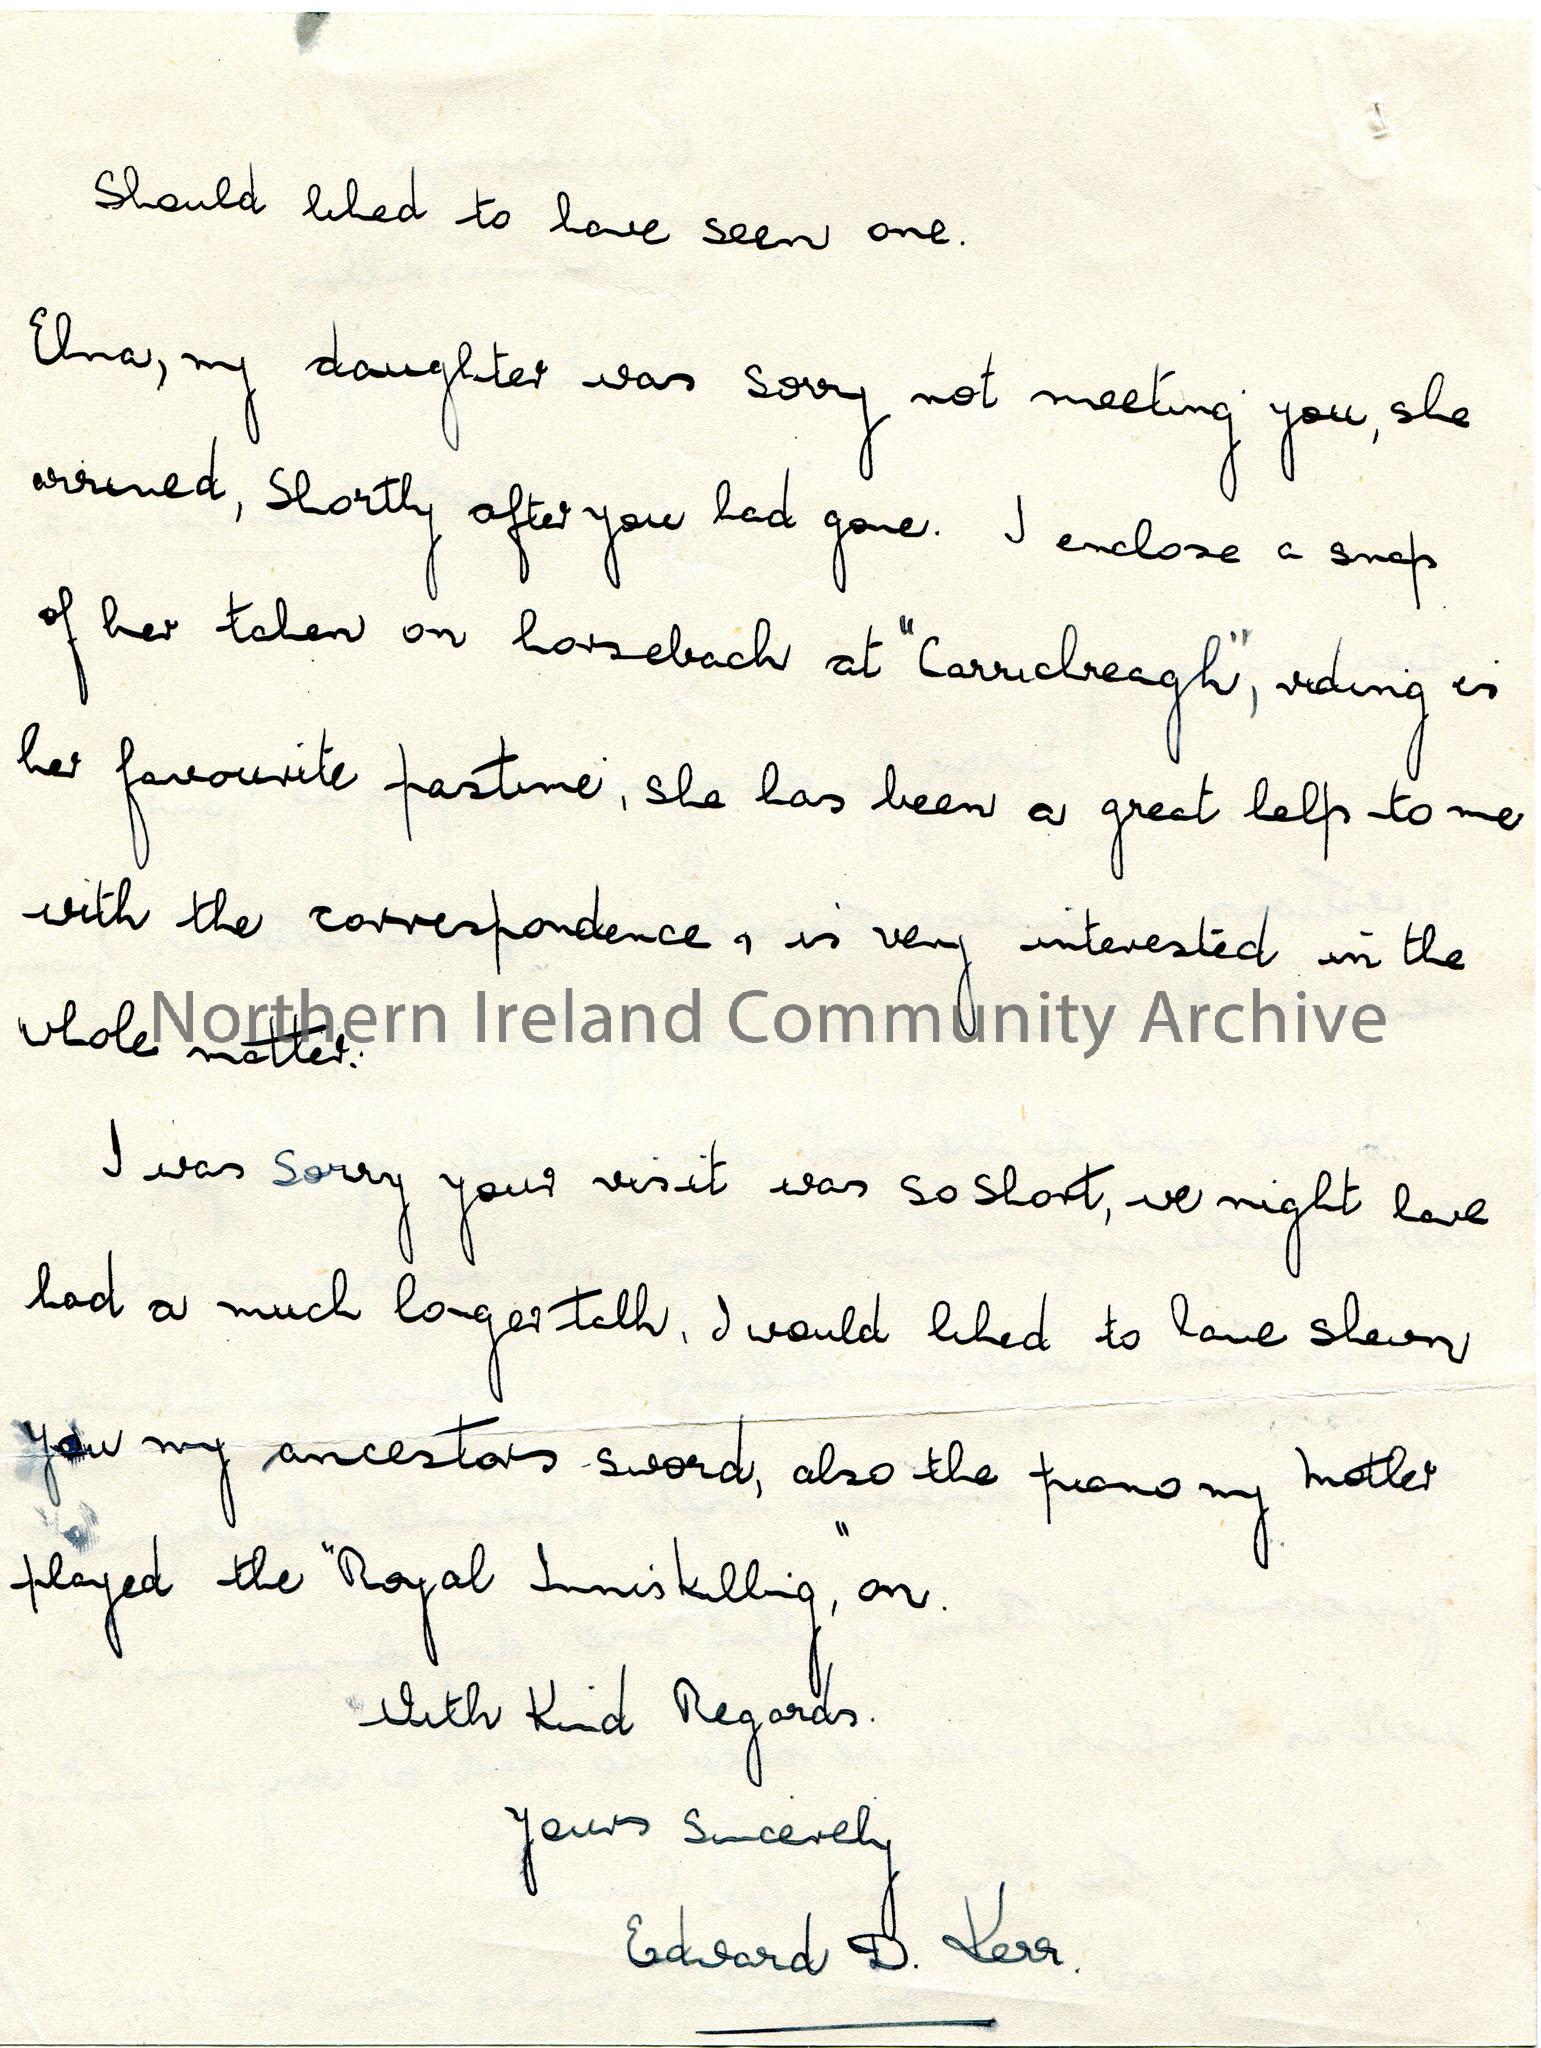 Should liked to have seen one.
Elma, my daughter was sorry not meeting you, she
arrived, shortly after you had gone. I enclose a snap
of her taken on horseback at "Carricreagh", riding is
her favourite pastime, she has been a great help to me
with the correspondence, is very interested in the
whole matter.
Northern Ireland Community Archive
I was sorry your visit was so short, we might have
had a much longer talk, I would liked to have shewn
you my ancestors sword, also the piano my Mother
played the "Royal Inniskillig," on.
With Kind Regards.
Yours Sincerely
Edward D. Kerr.